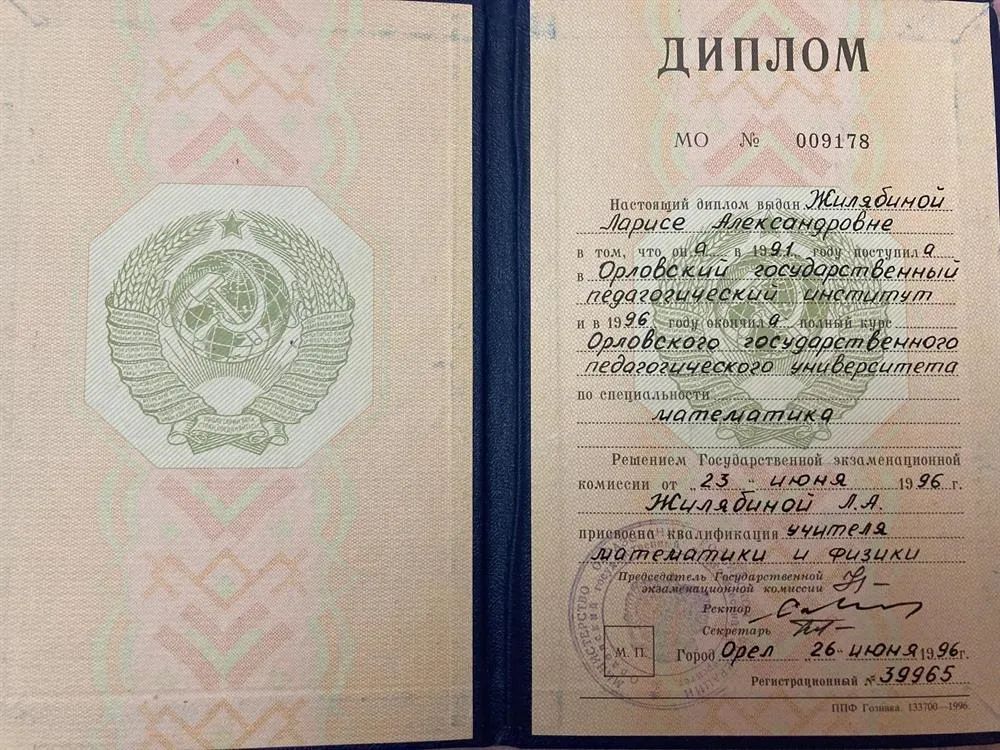 ДИПЛОМ
МО № 009178
Настоящий диплом выдан Жилябиной
Ларисе Александровне
в том, что она в 1991 году поступила
в Орловский государственный
педагогический институт
и в 1996 году окончила полный курс
Орловского государственного
педагогического университета
по специальности
математика
Решением Государственной экзаменационной
комиссии от „23“ июня 1996 г.
Жилябиной Л.А.
присвоена квалификация учителя
математики и физики
Председатель Государственной
экзаменационной комиссии
Ректор
Секретарь
М. П. Город Орел 26 июня 1996г.
Регистрационный № 39965
ППФ Гознака. 133700—1996.